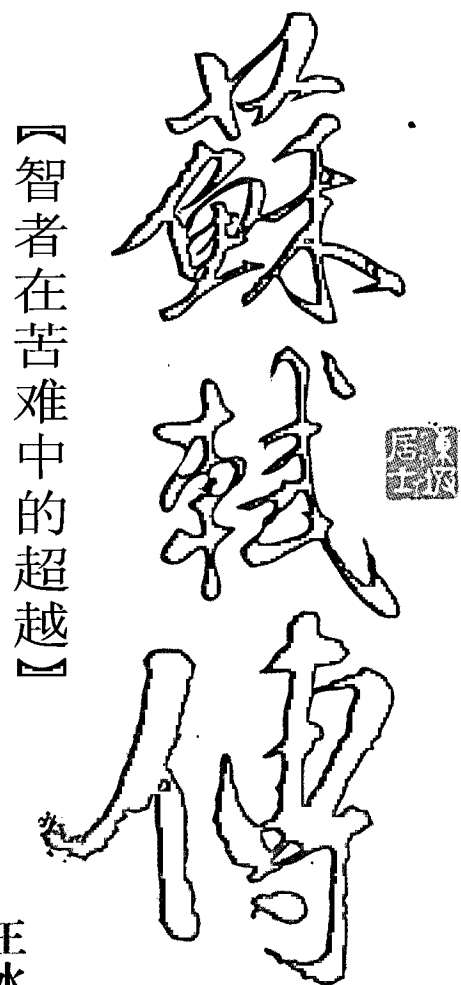 蘇軾傳
東坡居士
【智者在苦难中的超越】
王水